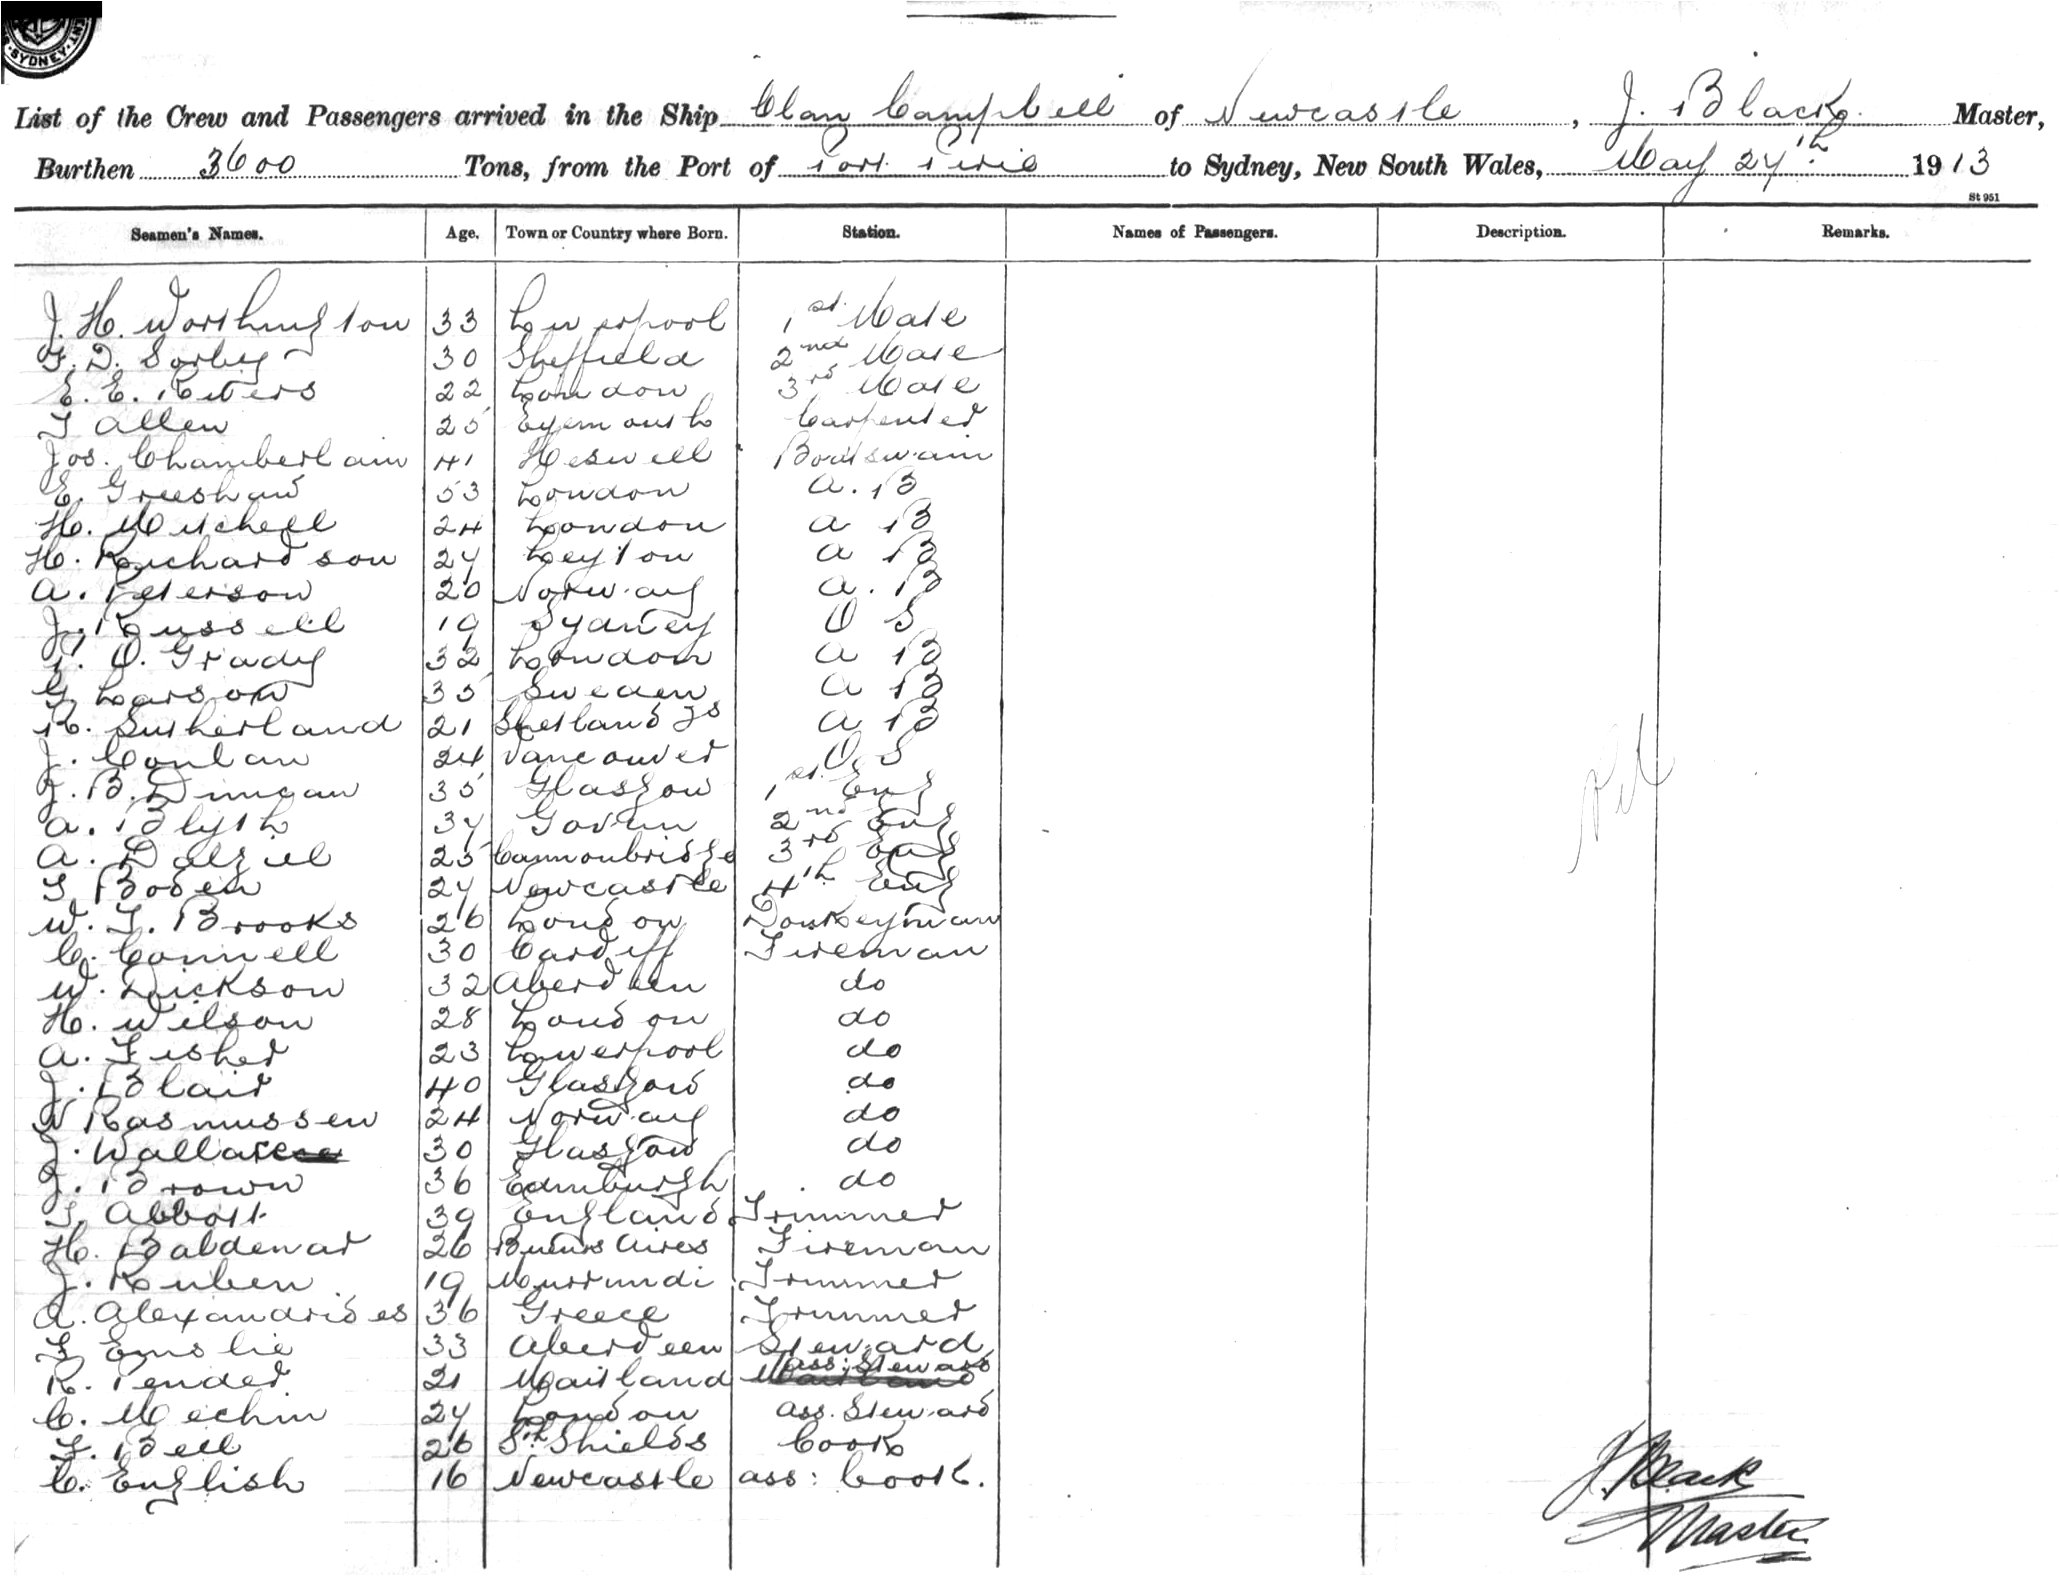 SYDNEY
List of the Crew and Passengers arrived in the Ship Clan Campbell of Newcastle, J. Black Master,
Burthen 3600 Tons, from the Port of Port Pirie to Sydney, New South Wales, May 27th 1913
St 951
Seamen's Names. Age. Town or Country where Born. Station. Names of Passengers. Description. Remarks.
J. H. Worthington 33 Liverpool 1st Mate
F. D. Sorby 30 Sheffield 2nd Mate
E. E. Peters 22 London 3rd Mate
T Allen 25 Eyemouth Carpenter
Jos. Chamberlain 41 Heswell Boatswain
E. Greeshaw 53 London A. B
H. Mitchell 24 London A B
H. Richardson 27 Leyton A B
A. Peterson 20 Norway A. B
J. Russell 19 Sydney O S
T. O. Grady 32 London A B
G Larson 35 Sweden A B
R. Sutherland 21 Shetland Is A B
J. Conlan 24 Vancouver O S
J. B. Duncan 35 Glasgow 1st Eng
A. Blyth 37 Govan 2nd Eng
A. Dalziel 25 Cannonbridge 3rd Eng
T Boden 27 Newcastle 4th Eng
W. T. Brooks 26 London Donkeyman
C. Connell 30 Cardiff Fireman
W. Dickson 32 Aberdeen do
H. Wilson 28 London do
A. Fisher 23 Liverpool do
J. Blair 40 Glasgow do
N Rasmussen 24 Norway do
J. Wallace 30 Glasgow do
J. Brown 36 Edinburgh do
T. Abbott 39 England Trimmer
H. Baldenar 26 Buenos Aires Fireman
J. Ruben 19 Murrundi Trimmer
A. Alexandrides 36 Greece Trimmer
T Emslie 33 Aberdeen Steward
R. Pender 21 Maitland Ass: Steward
C. Mechin 27 London Ass. Steward
F. Bell 26 Sth Shields Cook
C. English 16 Newcastle Ass: Cook.
Nil
J. Black
Master